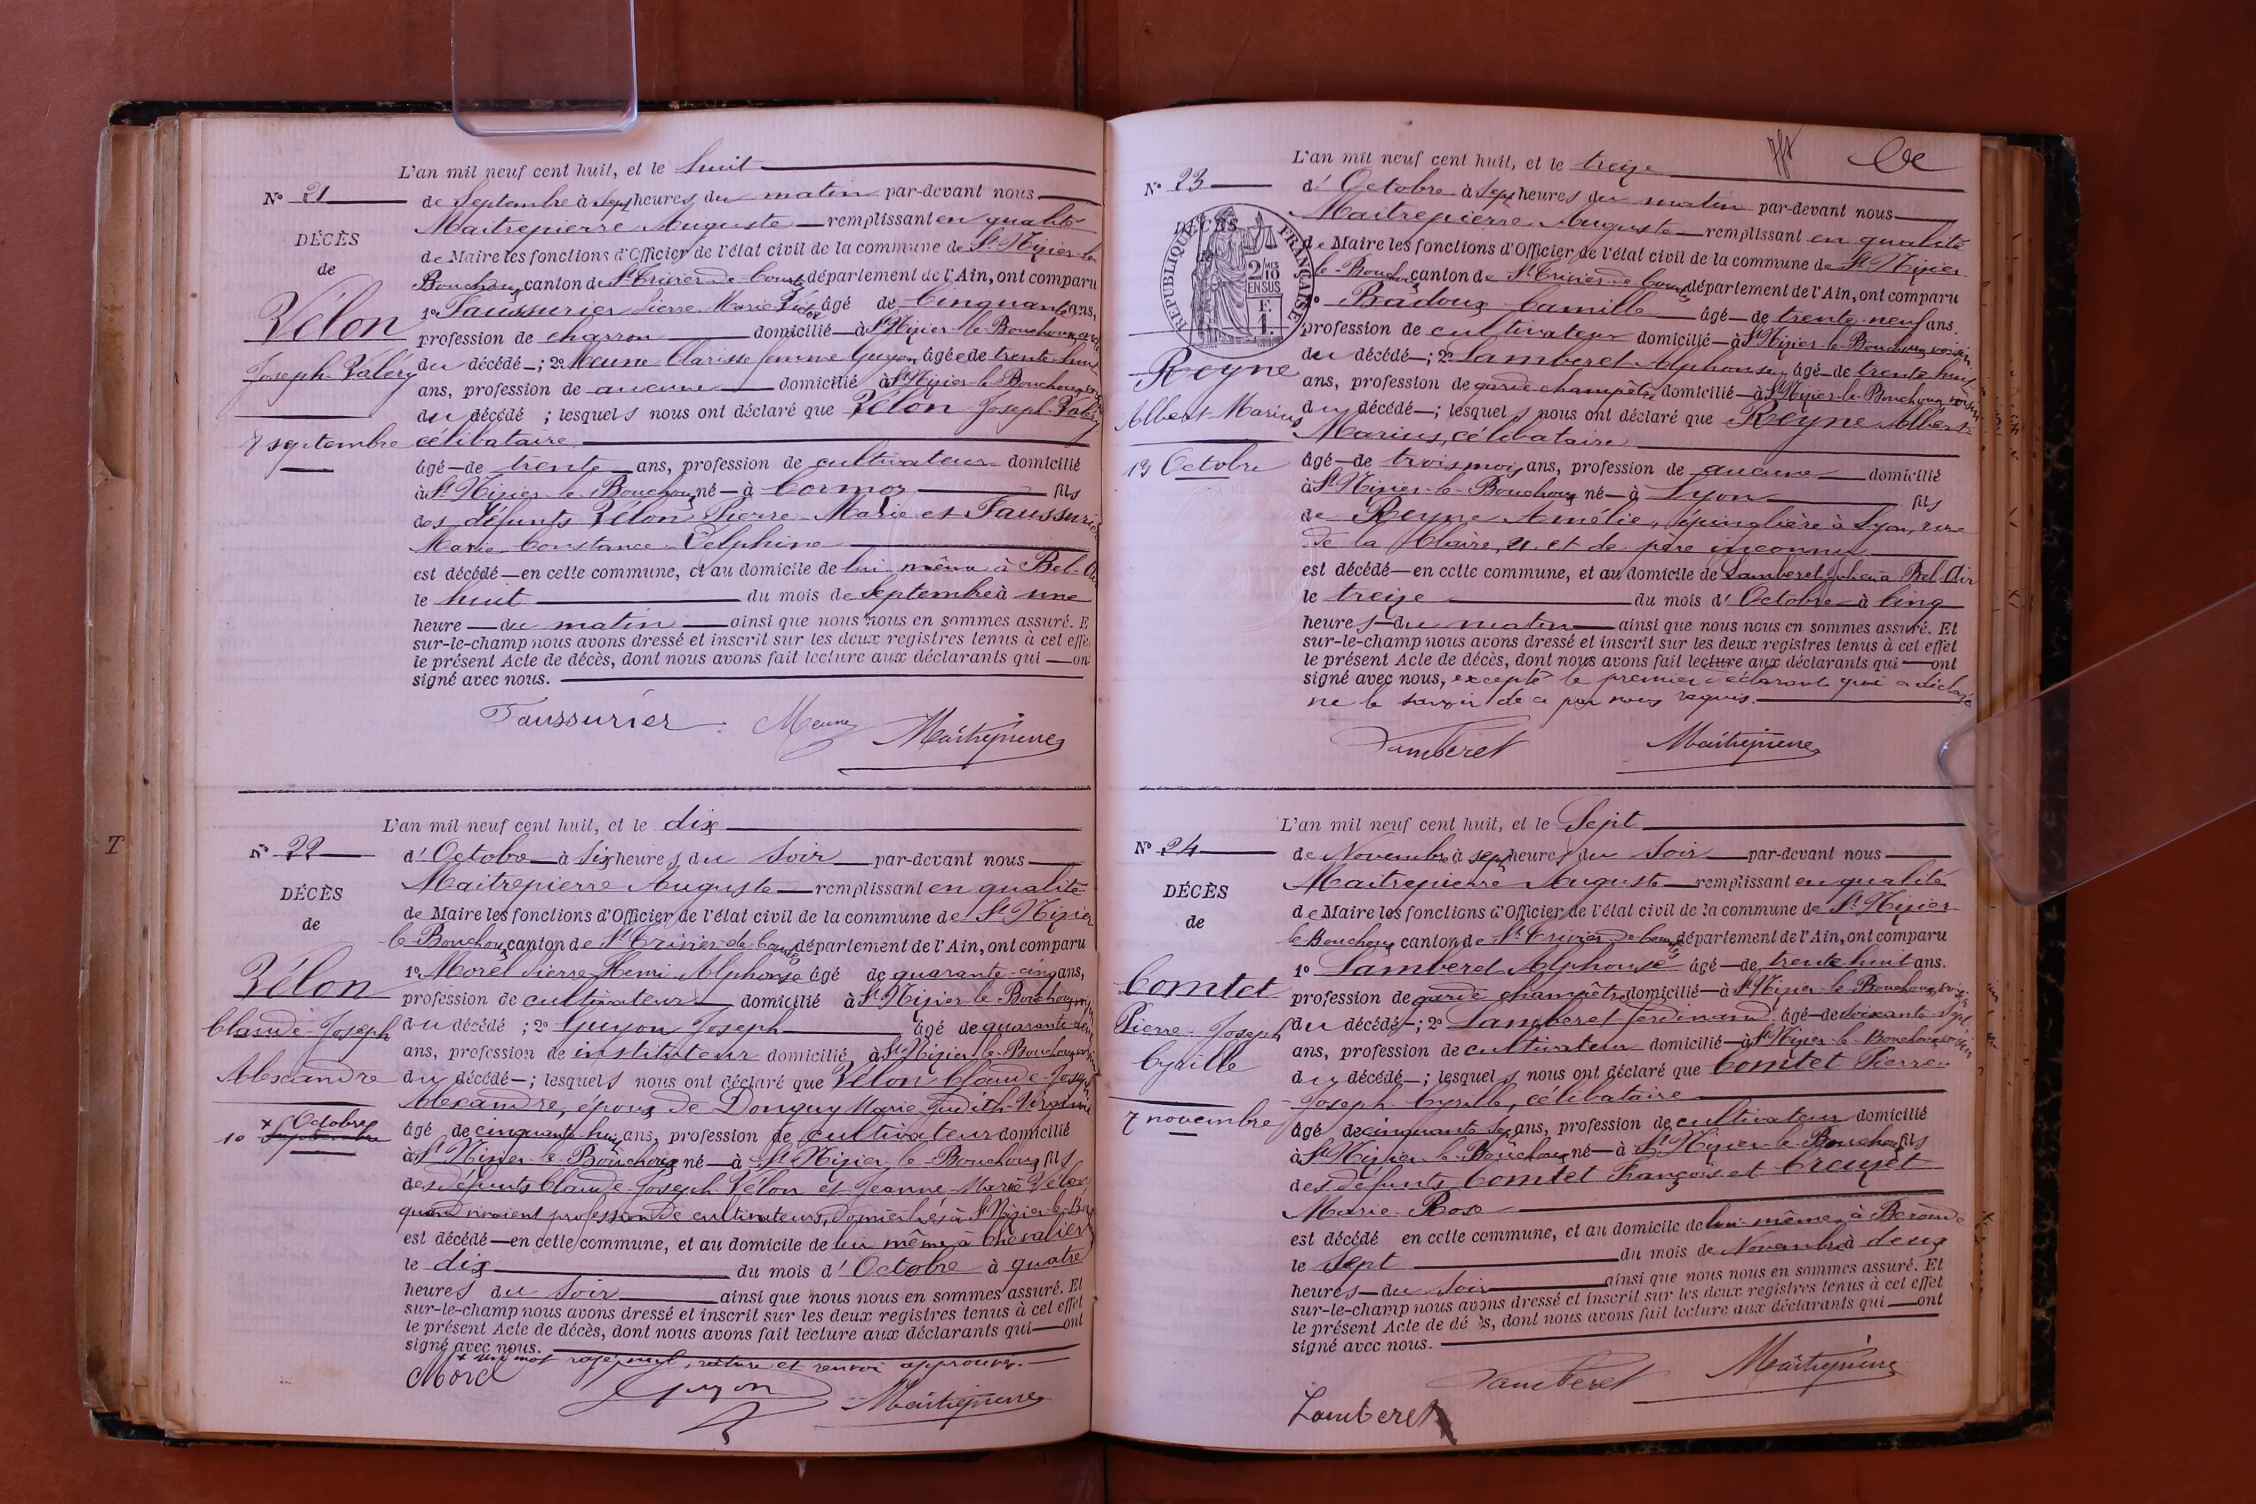 L'an mil neuf cent huit, et le huit
N° 21
de Septembre à sept heures du matin par-devant nous
Maitrepierre Auguste remplissant en qualité
DÉCÈS
de Maire les fonctions d'Officier de l'état civil de la commune de St Nizier-le
de
Bouchoux canton de St Trivier-de-Courtes département de l'Ain, ont comparu
Vélon
1° Faussurier Pierre Marie âgé de Cinquante ans,
profession de charron domicilié à St Nizier-le-Bouchoux
Joseph-Valéry
du décédé ; 2° Meune Clarisse femme Guyon âgée de trente-huit
ans, profession de aucune domicilié à St Nizier-le-Bouchoux
du décédé ; lesquels nous ont déclaré que Vélon Joseph-Valéry
7 septembre
célibataire
âgé de trente ans, profession de cultivateur domicilié
à St Nizier-le-Bouchoux né à Cormoz fils
des défunts Vélon Pierre-Marie et Faussurier
Marie Constance Delphine
est décédé en cette commune, et au domicile de lui même à Bel-Air
le huit du mois de Septembre à une
heure du matin ainsi que nous nous en sommes assuré. E
sur-le-champ nous avons dressé et inscrit sur les deux registres tenus à cet effe
le présent Acte de décès, dont nous avons fait lecture aux déclarants qui on
signé avec nous.
Faussurier Meune Maitrepierre
L'an mil neuf cent huit, et le dix
N° 22
d'Octobre à six heures du soir par-devant nous
Maitrepierre Auguste remplissant en qualité
DÉCÈS
de Maire les fonctions d'Officier de l'état civil de la commune de St Nizier
de
le-Bouchoux canton de St Trivier-de-Courtes département de l'Ain, ont comparu
Vélon
1° Morel Pierre Henri Alphonse âgé de quarante-cinq ans,
profession de cultivateur domicilié à St Nizier-le-Bouchoux
Claude-Joseph
du décédé ; 2° Guyon Joseph âgé de quarante
ans, profession de instituteur domicilié à St Nizier-le-Bouchoux
Alexandre
du décédé ; lesquels nous ont déclaré que Vélon Claude-Joseph
Alexandre, époux de Donguy Marie Judith
+ Octobre
10 Septembre
âgé de cinquante-huit ans, profession de cultivateur domicilié
à St Nizier-le-Bouchoux né à St Nizier-le-Bouchoux fils
des défunts Claude-Joseph Vélon et Jeanne Marie Vélon
quand vivaient profession de cultivateurs, domiciliés à St Nizier-le-B
est décédé en cette commune, et au domicile de lui même à Chevalier
le dix du mois d'Octobre à quatre
heures du soir ainsi que nous nous en sommes assuré. Et
sur-le-champ nous avons dressé et inscrit sur les deux registres tenus à cet effet
le présent Acte de décès, dont nous avons fait lecture aux déclarants qui ont
signé avec nous.
+ un mot rayé nul, rature et renvoi approuvés.
Morel Guyon Maitrepierre
T
L'an mil neuf cent huit, et le treize
N° 23
d'Octobre à sept heures du matin par-devant nous
Maitrepierre Auguste remplissant en qualité
DÉCÈS
RÉPUBLIQUE FRANÇAISE
2/10 EN SUS
F. 1.
de Maire les fonctions d'Officier de l'état civil de la commune de St Nizier
le-Bouchoux canton de St Trivier-de-Courtes département de l'Ain, ont comparu
1° Badoux Camille âgé de trente-neuf ans.
profession de cultivateur domicilié à St Nizier-le-Bouchoux voisin
Reyne
du décédé ; 2° Lamberet Alphonse âgé de trente-huit
ans, profession de garde champêtre domicilié à St Nizier-le-Bouchoux voisin
Albert-Marius
du décédé ; lesquels nous ont déclaré que Reyne Albert
Marius, célibataire
13 Octobre
âgé de trois mois ans, profession de aucune domicilié
à St Nizier-le-Bouchoux né à Lyon fils
de Reyne Amélie, épinglière à Lyon, rue
de la Claire, 21. et de père inconnu
est décédé en cette commune, et au domicile de Lamberet à Bel-Air
le treize du mois d'Octobre à cinq
heures du matin ainsi que nous nous en sommes assuré. Et
sur-le-champ nous avons dressé et inscrit sur les deux registres tenus à cet effet
le présent Acte de décès, dont nous avons fait lecture aux déclarants qui ont
signé avec nous, excepté le premier déclarant qui a déclaré
ne le savoir de ce par nous requis.
Lamberet Maitrepierre
L'an mil neuf cent huit, et le Sept
N° 24
de Novembre à sept heures du soir par-devant nous
Maitrepierre Auguste remplissant en qualité
DÉCÈS
de Maire les fonctions d'Officier de l'état civil de la commune de St Nizier
de
le-Bouchoux canton de St Trivier-de-Courtes département de l'Ain, ont comparu
Comtet
1° Lamberet Alphonse âgé de trente-huit ans.
profession de garde champêtre domicilié à St Nizier-le-Bouchoux voisin
Pierre-Joseph
du décédé ; 2° Lamberet Ferdinand âgé de soixante-sept
ans, profession de cultivateur domicilié à St Nizier-le-Bouchoux voisin
Cyrille
du décédé ; lesquels nous ont déclaré que Comtet Pierre
Joseph Cyrille, célibataire
7 novembre
âgé de cinquante-six ans, profession de cultivateur domicilié
à St Nizier-le-Bouchoux né à St Nizier-le-Bouchoux fils
des défunts Comtet François et Creuzet
Marie-Rose
est décédé en cette commune, et au domicile de lui-même à
le sept du mois de Novembre à deux
heures du soir ainsi que nous nous en sommes assuré. Et
sur-le-champ nous avons dressé et inscrit sur les deux registres tenus à cet effet
le présent Acte de dé ès, dont nous avons fait lecture aux déclarants qui ont
signé avec nous.
Lamberet Maitrepierre
Lamberet